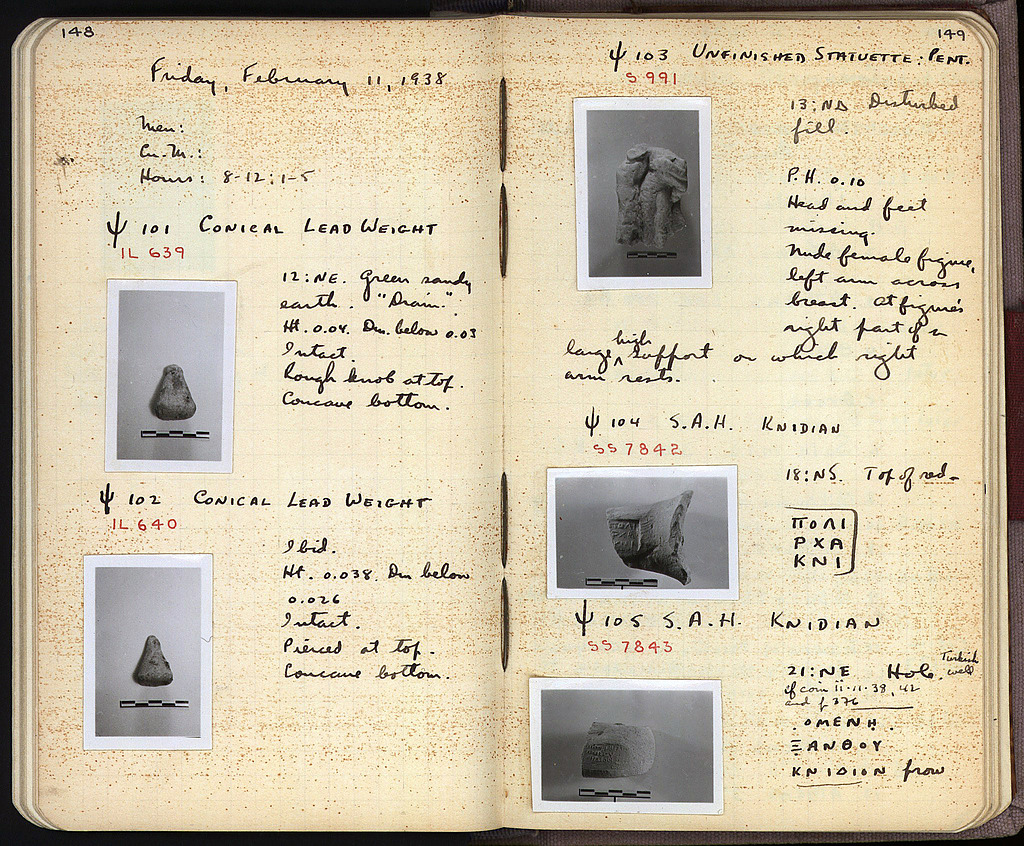 148
Friday, February 11, 1938
Men:
Cu. M.:
Hours: 8-12; 1-5
Ψ 101 CONICAL LEAD WEIGHT
IL 639
12:NE. Green sandy
earth. "Drain".
Ht. 0.04. Dm. below 0.03
Intact.
Rough knob at top.
Concave bottom.
Ψ 102 CONICAL LEAD WEIGHT
IL 640
Ibid.
Ht. 0.038. Dm below
0.026
Intact.
Pierced at top.
Concave bottom.
149
Ψ 103 UNFINISHED STATUETTE: PENT.
S 991
13:ΝΔ Disturbed
fill.
P.H. 0.10
Head and feet
missing.
Nude female figure,
left arm across
breast. At figure's
right part of a
large high support on which right
arm rests.
Ψ 104 S.A.H. KNIDIAN
SS 7842
18:NS. Top of red-
ΠΟΛΙ
ΡΧΑ
ΚΝΙ
Ψ 105 S.A.H. KNIDIAN
SS 7843
21:NE Hole. Turkish
well
cf coin 11-11-38, 42
and p 376
ΟΜΕΝΗ
ΞΑΝΘΟΥ
ΚΝΙΔΙΟΝ prow